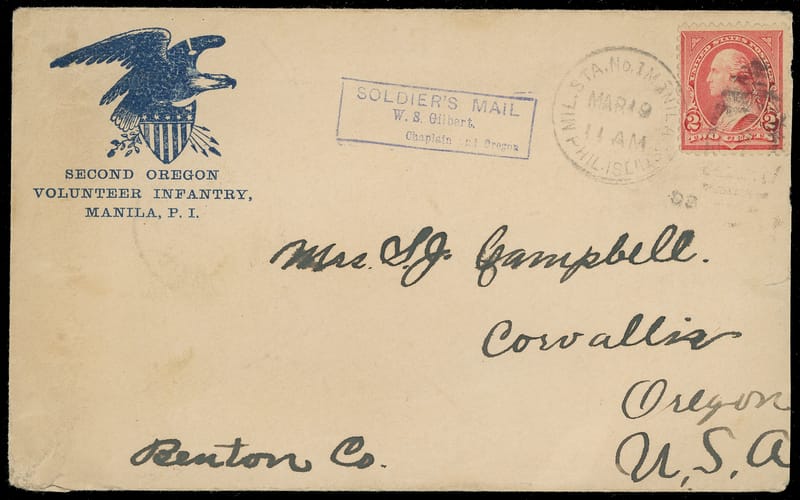 SECOND OREGON
VOLUNTEER INFANTRY,
MANILA, P. I.
SOLDIER'S MAIL
W. S. Gilbert,
Chaplain 2nd Oregon
MIL. STA. No. 1 MANILA
MAR 19
11 AM
PHIL. ISLDS
UNITED STATES POSTAGE
2 2
TWO CENTS
Mrs. S. J. Campbell.
Corvallis
Oregon
Benton Co.
U.S.A